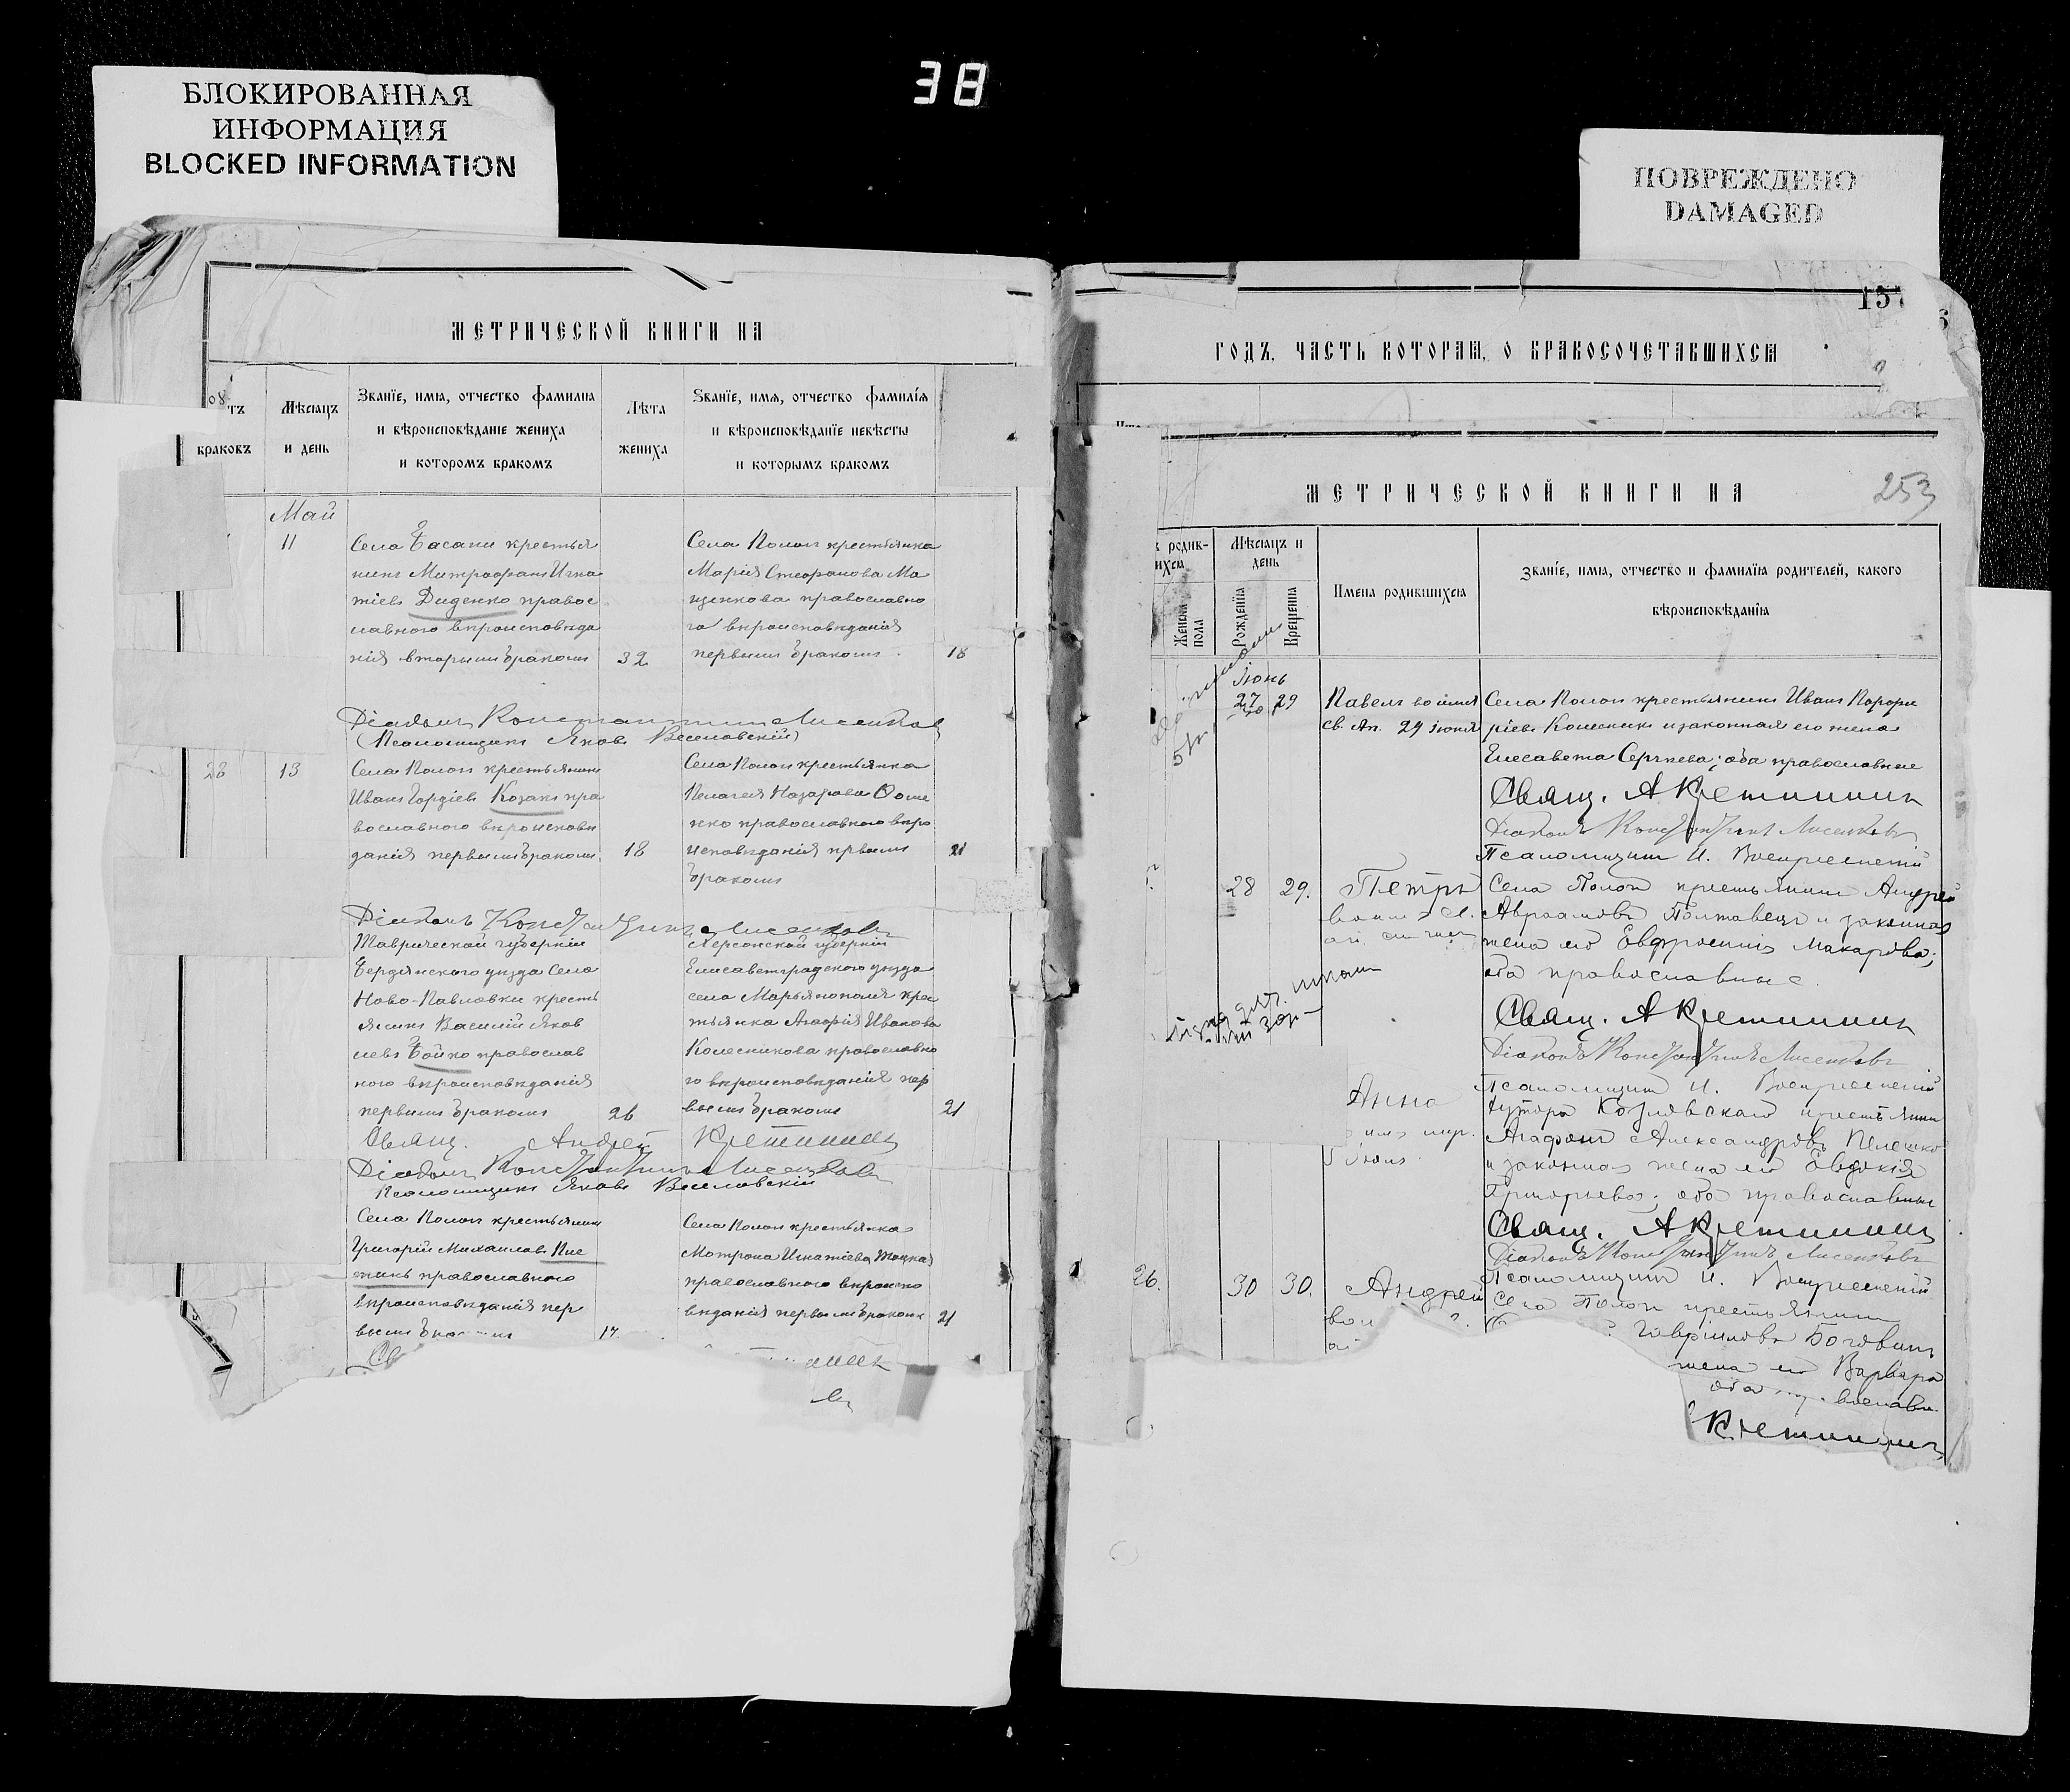 38
БЛОКИРОВАННАЯ
ИНФОРМАЦИЯ
BLOCKED INFORMATION
ПОВРЕЖДЕНО
DAMAGED
МЕТРИЧЕСКОЙ КНИГИ НА
тъ
браковъ
Мѣсяцъ
и день
Званїе, имя, отчество фамилиа
и вѣроисповѣданіе жениха
и которомъ бракомъ
Лѣта
жениха
Званїе, имя, отчество фамилїя
и вѣроисповѣданїе невѣсты
и которымъ бракомъ
Май
11
Села Басани крестья
нинъ Митрофанъ Игна
тіевъ Диденко правос
лавного вѣроисповѣда
нія вторымъ бракомъ
32
Села Пологи крестьянка
Марія Стефанова Ма
ценкова православно
го вѣроисповѣданія
первымъ бракомъ
18
Діаконъ Константинъ Лисенковъ
Псаломщикъ Яковъ Веселовскій
28
13
Села Пологи крестьянинъ
Иванъ Гордіевъ Козакъ пра
вославного вѣроисповѣ
данія первымъ бракомъ
18
Села Пологи крестьянка
Пелагея Назарова Фоме
нко православного вѣро
исповѣданія первымъ
бракомъ
21
Діаконъ Константинъ Лисенковъ
Таврической губерніи
Бердянского уѣзда села
Ново-Павловки кресть
янинъ Василій Яков
левъ Бойко православ
ного вѣроисповѣданія
первымъ бракомъ
26
Херсонской губерніи
Елисаветградского уѣзда
села Марьянополя крес
тьянка Агафія Иванова
Колесникова православно
го вѣроисповѣданія пер
вымъ бракомъ
21
Свящ. Андрей Кретининъ
Діаконъ Константинъ Лисенковъ
Псаломщикъ Яковъ Веселовскій
Села Пологи крестьянинъ
Григорій Михаиловъ
православного
вѣроисповѣданія пер
вымъ
Села Пологи крестьянка
Мотрона Игнатіева
православного вѣроиспо
вѣданія первымъ бракомъ
21
157
ГОДЪ, ЧАСТЬ КОТОРАЯ, О БРАКОСОЧЕТАВШИХСЯ
МЕТРИЧЕСКОЙ КНИГИ НА
253
Женска
пола
Мѣсяцъ и
день
Рожденїя
Крещенїя
Имена родившихся
Званїе, имя, отчество и фамилїя родителей, какого
вѣроисповѣданїя
Іюнь
27
29
Павелъ во имя
св. Ап. 29 іюня
Села Пологи крестьянинъ Иванъ Порфи
ріевъ Колесникъ и законная его жена
Елисавета Сергѣева; оба православные
Свящ. А Кретининъ
Діаконъ Константинъ Лисенковъ
Псаломщикъ И. Воскресенскій
28
29.
Петръ
Села Пологи крестьянинъ Андрей
Авраамовъ Полтавецъ и законная
жена его Евфросинія Макарова;
оба православные
Свящ. А Кретининъ
Діаконъ Константинъ Лисенковъ
Псаломщикъ И. Воскресенскій
Анна
Хутора Козловскаго крестьянинъ
Агафонъ Александровъ
и законная жена его Евдокія
Григорьева; оба православные
Свящ. А Кретининъ
Діаконъ Константинъ Лисенковъ
Псаломщикъ И. Воскресенскій
26.
30
30.
Андрей
Села Пологи крестьянинъ
Гавріиловъ
жена его Варвара
оба
Кретининъ